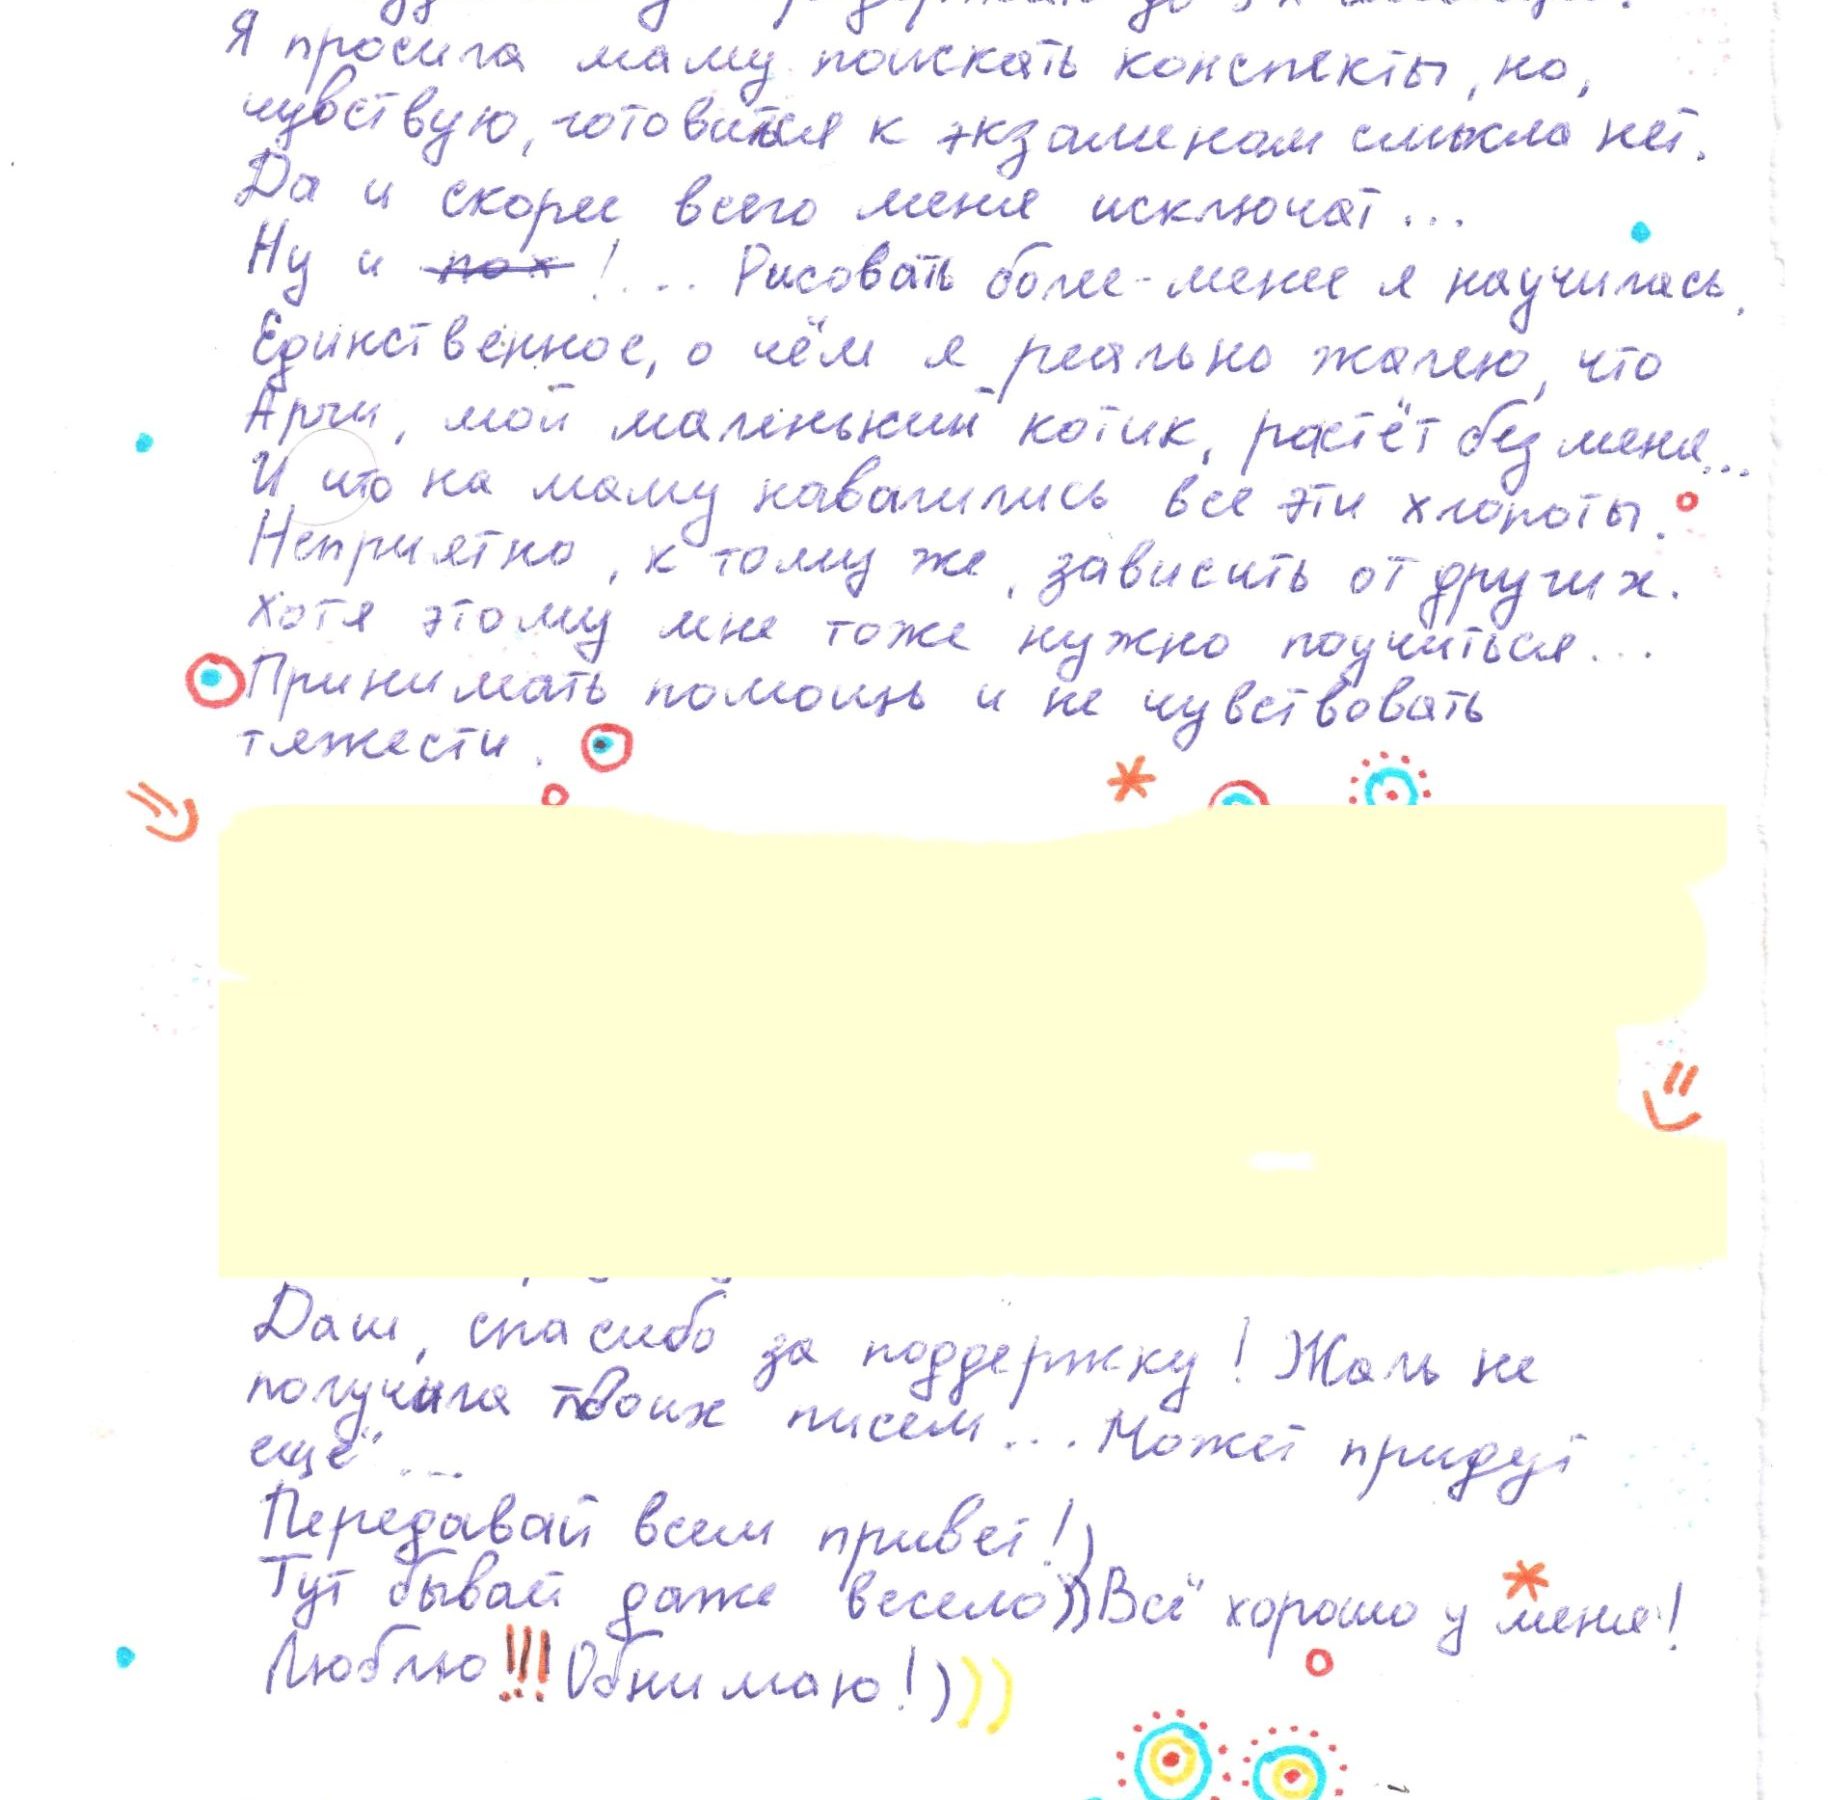 Я просила маму поискать конспекты, но,
чувствую, готовиться к экзаменам смысла нет.
Да и скорее всего меня исключат...
Ну и пох!... Рисовать более-менее я научилась.
Единственное, о чём я реально жалею, что
Арчи, мой маленький котик, растёт без меня...
И что на маму навалились все эти хлопоты.
Неприятно, к тому же, зависить от других.
Хотя этому мне тоже нужно поучиться...
Принимать помощь и не чувствовать
тяжести.
Даш, спасибо за поддержку! Жаль не
получила твоих писем... Может придут
ещё...
Передавай всем привет!)
Тут бывай даже весело)) Всё хорошо у меня!
Люблю!!! Обнимаю!)))